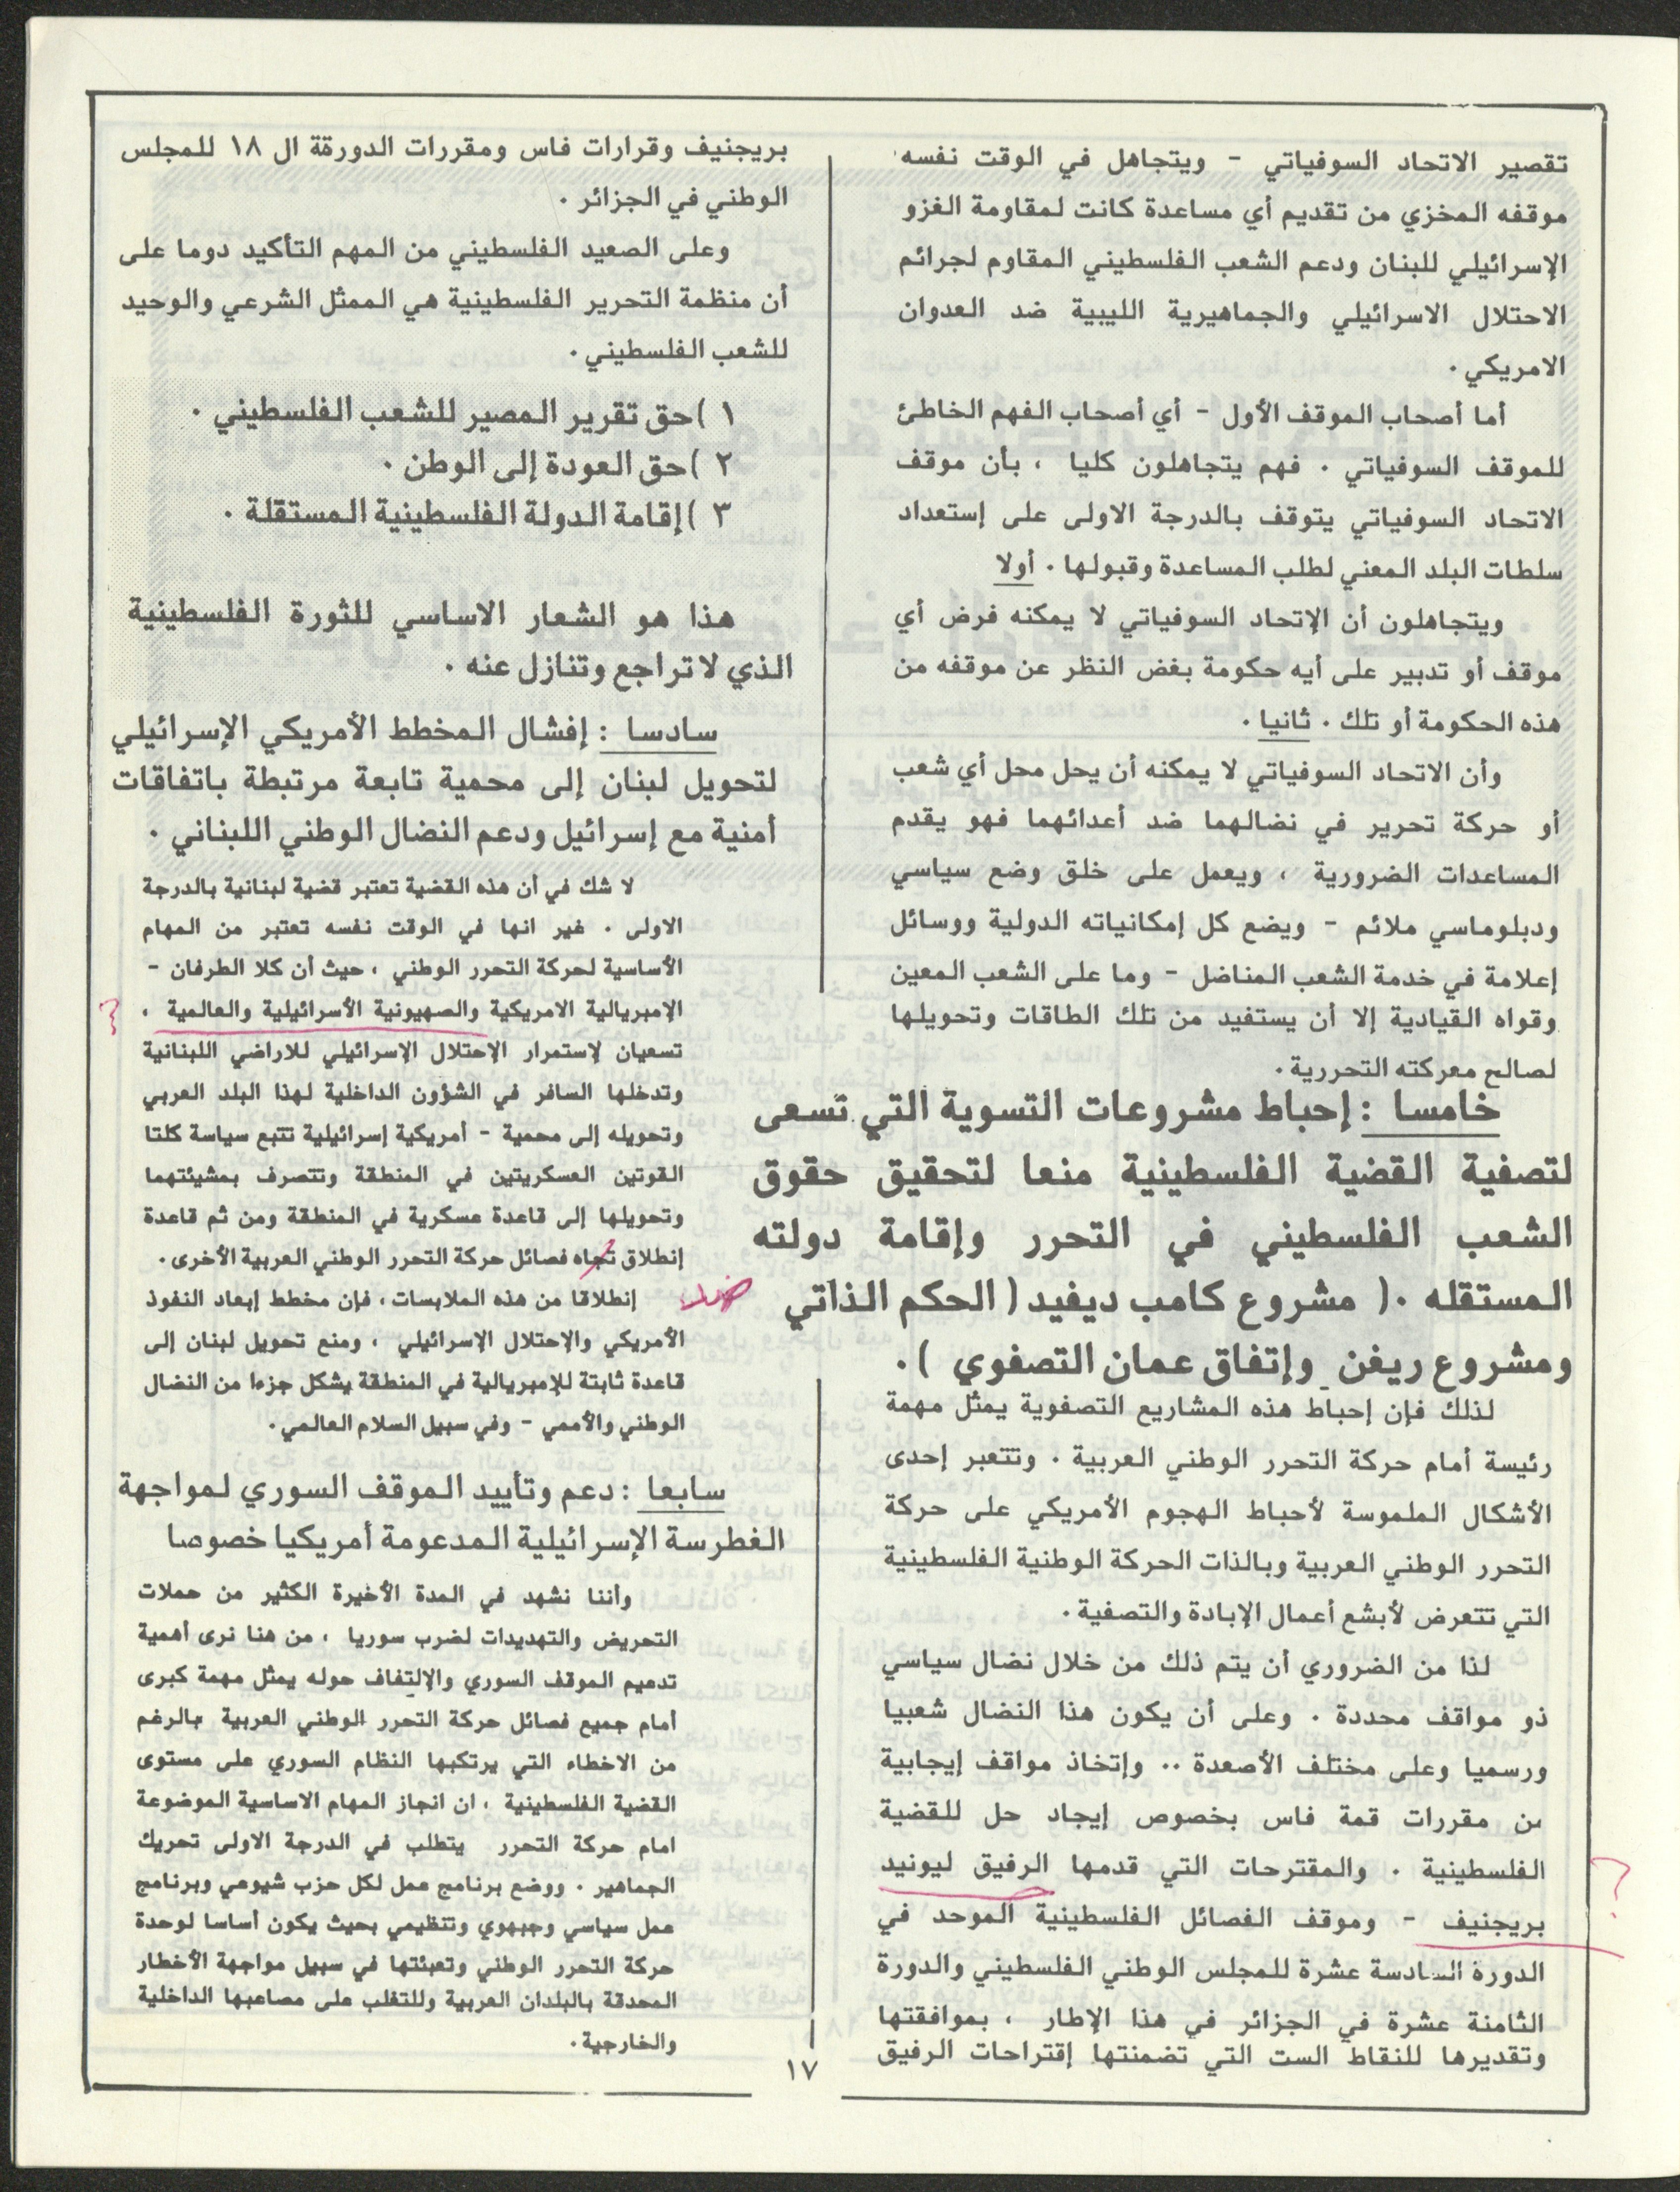 تقصير الاتحاد السوفياتي - ويتجاهل في الوقت نفسه
موقفه المخزي من تقديم أي مساعدة كانت لمقاومة الغزو
الإسرائيلي للبنان ودعم الشعب الفلسطيني المقاوم لجرائم
الاحتلال الاسرائيلي والجماهيرية الليبية ضد العدوان
الامريكي .
أما أصحاب الموقف الأول - أي أصحاب الفهم الخاطئ
للموقف السوفياتي . فهم يتجاهلون كليا ، بأن موقف
الاتحاد السوفياتي يتوقف بالدرجة الاولى على إستعداد
سلطات البلد المعني لطلب المساعدة وقبولها . أولا
ويتجاهلون أن الإتحاد السوفياتي لا يمكنه فرض أي
موقف أو تدبير على أيه حكومة بغض النظر عن موقفه من
هذه الحكومة أو تلك . ثانيا .
وأن الاتحاد السوفياتي لا يمكنه أن يحل محل أي شعب
أو حركة تحرير في نضالهما ضد أعدائهما فهو يقدم
المساعدات الضرورية ، ويعمل على خلق وضع سياسي
ودبلوماسي ملائم - ويضع كل إمكانياته الدولية ووسائل
إعلامة في خدمة الشعب المناضل - وما على الشعب المعين
وقواه القيادية إلا أن يستفيد من تلك الطاقات وتحويلها
لصالح معركته التحررية .
خامسا : إحباط مشروعات التسوية التي تسعى
لتصفية القضية الفلسطينية منعا لتحقيق حقوق
الشعب الفلسطيني في التحرر وإقامة دولته
المستقله .( مشروع كامب ديفيد ( الحكم الذاتي
ومشروع ريغن وإتفاق عمان التصفوي ) .
لذلك فإن إحباط هذه المشاريع التصفوية يمثل مهمة
رئيسة أمام حركة التحرر الوطني العربية . وتتعبر إحدى
الأشكال الملموسة لأحباط الهجوم الأمريكي على حركة
التحرر الوطني العربية وبالذات الحركة الوطنية الفلسطينية
التي تتعرض لأبشع أعمال الإبادة والتصفية .
لذا من الضروري أن يتم ذلك من خلال نضال سياسي
ذو مواقف محددة . وعلى أن يكون هذا النضال شعبيا
ورسميا وعلى مختلف الأصعدة .. وإتخاذ مواقف إيجابية
من مقررات قمة فاس بخصوص إيجاد حل للقضية
الفلسطينية . والمقترحات التي قدمها الرفيق ليونيد
؟
بريجنيف - وموقف الفصائل الفلسطينية الموحد في
الدورة السادسة عشرة للمجلس الوطني الفلسطيني والدورة
الثامنة عشرة في الجزائر في هذا الإطار ، بموافقتها
وتقديرها للنقاط الست التي تضمنتها إقتراحات الرفيق
بريجنيف وقرارات فاس ومقررات الدورقة ال ١٨ للمجلس
الوطني في الجزائر .
وعلى الصعيد الفلسطيني من المهم التأكيد دوما على
أن منظمة التحرير الفلسطينية هي الممثل الشرعي والوحيد
للشعب الفلسطيني .
١ )حق تقرير المصير للشعب الفلسطيني .
٢ )حق العودة إلى الوطن .
٣ )إقامة الدولة الفلسطينية المستقلة .
هذا هو الشعار الاساسي للثورة الفلسطينية
الذي لا تراجع وتنازل عنه .
سادسا : إفشال المخطط الأمريكي الإسرائيلي
لتحويل لبنان إلى محمية تابعة مرتبطة باتفاقات
أمنية مع إسرائيل ودعم النضال الوطني اللبناني .
لا شك في أن هذه القضية تعتبر قضية لبنانية بالدرجة
الاولى . غير انها في الوقت نفسه تعتبر من المهام
الأساسية لحركة التحرر الوطني ، حيث أن كلا الطرفان -
الإمبريالية الامريكية والصهيونية الأسرائيلية والعالمية .
؟
تسعيان لإستمرار الإحتلال الإسرائيلي للاراضي اللبنانية
وتدخلها السافر في الشؤون الداخلية لهذا البلد العربي
وتحويله إلى محمية - أمريكية إسرائيلية تتبع سياسة كلتا
القوتين العسكريتين في المنطقة وتتصرف بمشيئتهما
وتحويلها إلى قاعدة عسكرية في المنطقة ومن ثم قاعدة
إنطلاق تجاه فصائل حركة التحرر الوطني العربية الأخرى .
ضد
إنطلاقا من هذه الملابسات ، فإن مخطط إبعاد النفوذ
الأمريكي والإحتلال الإسرائيلي ، ومنع تحويل لبنان إلى
قاعدة ثابتة للإمبريالية في المنطقة يشكل جزءا من النضال
الوطني والأممي - وفي سبيل السلام العالمي .
سابعا : دعم وتأييد الموقف السوري لمواجهة
الغطرسة الإسرائيلية المدعومة أمريكيا خصوصا
وأننا نشهد في المدة الأخيرة الكثير من حملات
التحريض والتهديدات لضرب سوريا ، من هنا نرى أهمية
تدعيم الموقف السوري والإلتفاف حوله يمثل مهمة كبرى
أمام جميع فصائل حركة التحرر الوطني العربية بالرغم
من الاخطاء التي يرتكبها النظام السوري على مستوى
القضية الفلسطينية ، ان انجاز المهام الاساسية الموضوعة
امام حركة التحرر يتطلب في الدرجة الاولى تحريك
الجماهير . ووضع برنامج عمل لكل حزب شيوعي وبرنامج
عمل سياسي وجبهوي وتنظيمي بحيث يكون أساسا لوحدة
حركة التحرر الوطني وتعبئتها في سبيل مواجهة الأخطار
المحدقة بالبلدان العربية وللتغلب على مصاعبها الداخلية
والخارجية .
١٧